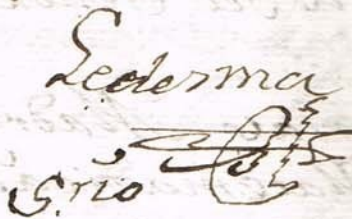 Ledesma
S.rio